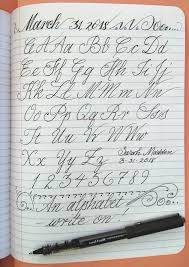 March 31 2018
Aa Aa Bb Cc Dd
Ee Ff Gg Hh Ii Jj
Kk Ll Mm Nn Oo
Pp Qq Rr Ss Tt
Uu Vv Ww
Xx Yy Zz Sarah Madden
3-31-2018
1 2 3 4 5 6 7 8 9
An alphabet
write on!